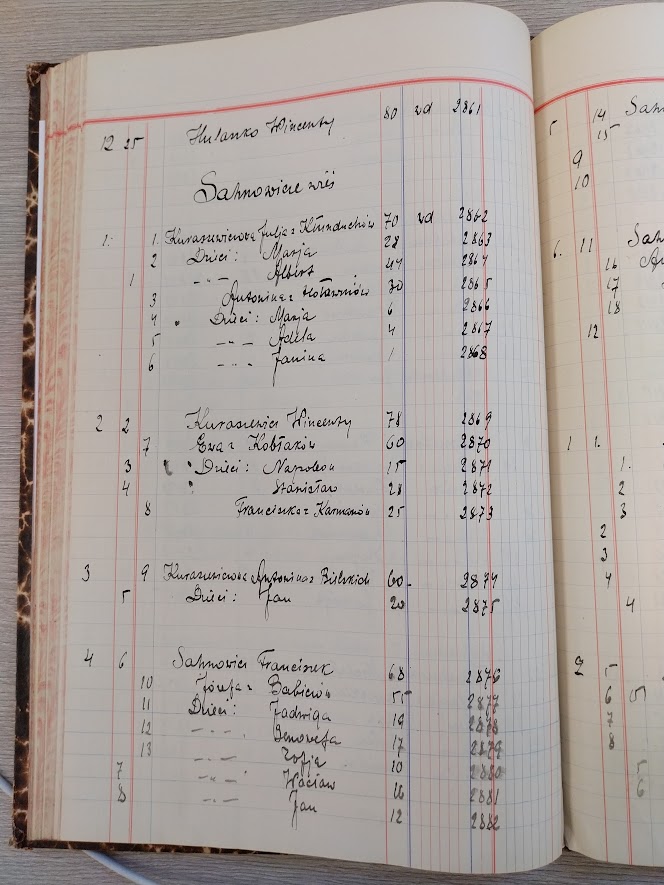 12 25 Hulanko Wincenty 80 wd 2861
Sahnowicze wieś
1. 1. Kuraszewiczowa Julja z 70 wd 2862
2 Dzieci: Marja 28 2863
1 -"- Albert 44 2864
3 Antonina z 30 2865
4 Dzieci: Marja 6 2866
5 -"- Adela 4 2867
6 -"- Janina 1 2868
2 2 Kuraszewicz Wincenty 78 2869
7 Ewa z Kobłaków 60 2870
3 Dzieci: Napoleon 15 2871
4 " Stanisław 28 2872
8 Franciszka z Karmanów 25 2873
3 9 Kuraszewiczowa Antonina z Bielskich 60 2874
5 Dzieci: Jan 20 2875
4 6 Sahnowicz Franciszek 68 2876
10 Józefa z Babiczów 55 2877
11 Dzieci: Jadwiga 19 2878
12 -"- Genowefa 17 2879
13 -"- Zofja 10 2880
7 -"- Wacław 16 2881
8 -"- Jan 12 2882
14
5 15
9
10
6. 11
16
17
18
12
1 1.
1.
2
3
2
3
4
4
7 5
6 5
7
8